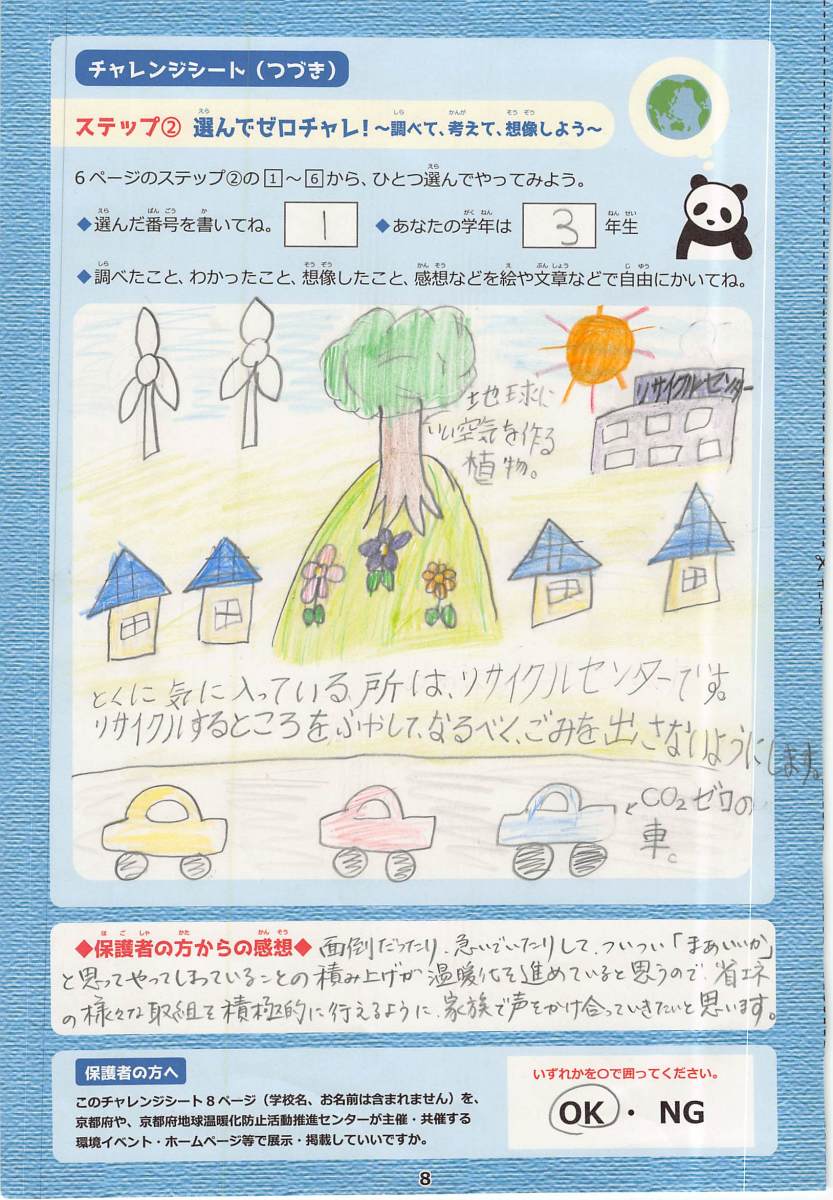 チャレンジシート（つづき）
ステップ② 選んでゼロチャレ！～調べて、考えて、想像しよう～
6ページのステップ②の1～6から、ひとつ選んでやってみよう。
◆選んだ番号を書いてね。 1 ◆あなたの学年は 3 年生
◆調べたこと、わかったこと、想像したこと、感想などを絵や文章などで自由にかいてね。
リサイクルセンター
地球に
いい空気を作る
植物。
とくに気に入っている所は、リサイクルセンターです。
リサイクルするところをふやして、なるべく、ごみを出さないようにします。
CO2ゼロの
車。
◆保護者の方からの感想◆ 面倒だったり、急いでいたりして、ついつい「まあいいか」
と思ってやってしまっていることの積み上げが温暖化を進めていると思うので、省エネ
の様々な取組を積極的に行えるように、家族で声をかけ合っていきたいと思います。
保護者の方へ
このチャレンジシート8ページ（学校名、お名前は含まれません）を、
京都府や、京都府地球温暖化防止活動推進センターが主催・共催する
環境イベント・ホームページ等で展示・掲載していいですか。
いずれかを○で囲ってください。
OK ・ NG
8